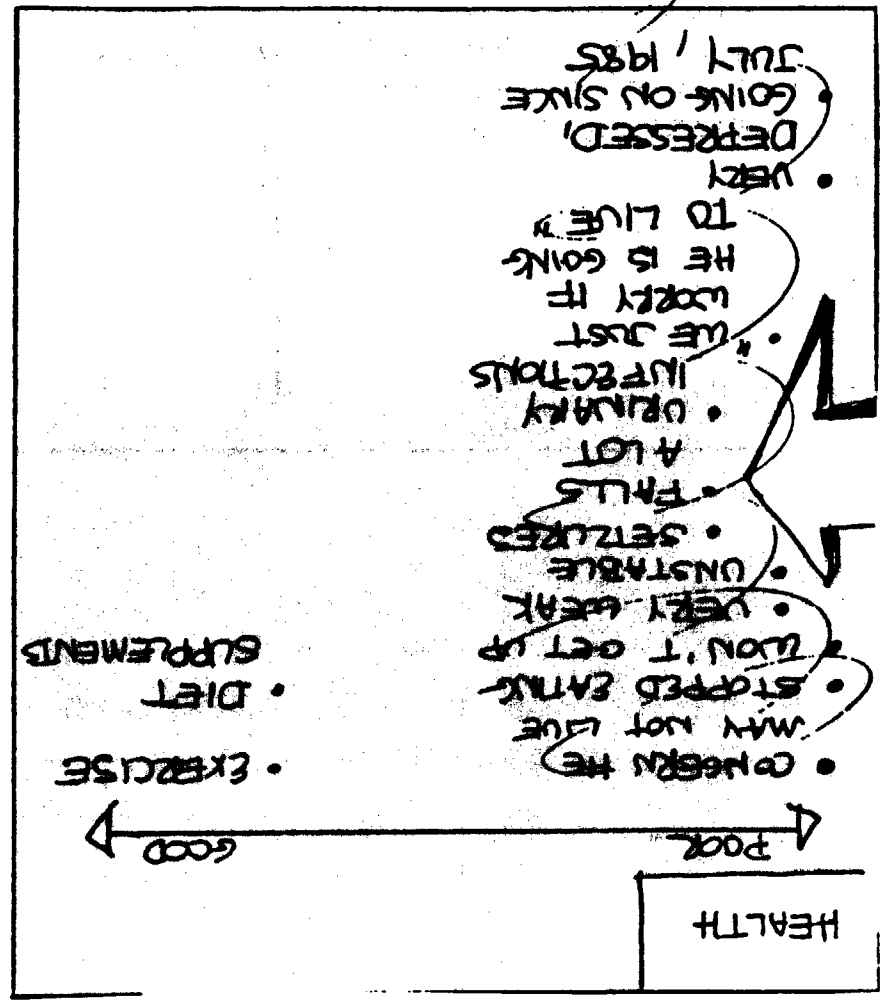 HEALTH
POOR
GOOD
• CONCERN HE
MAY NOT LIVE
• STOPPED EATING
• WON'T GET UP
• VERY WEAK
• UNSTABLE
• SEIZURES
• FALLS
A LOT
• URINARY
INFECTIONS
• "WE JUST
WORRY IF
HE IS GOING
TO LIVE"
• VERY
DEPRESSED,
• GOING ON SINCE
JULY, 1985
• EXERCISE
• DIET
SUPPLEMENTS